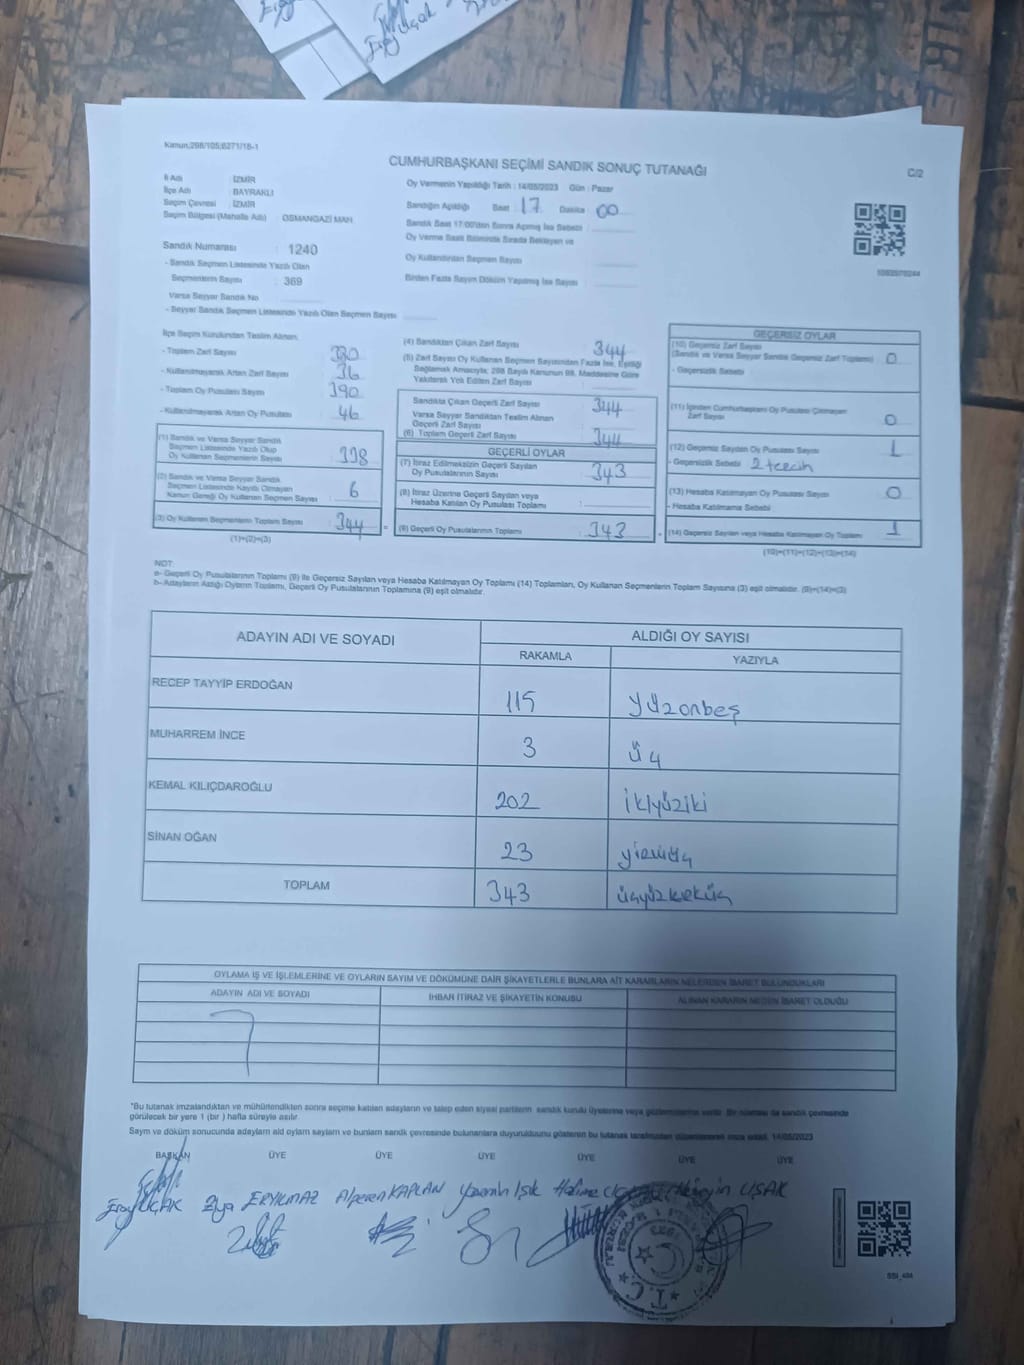 Kanun;298/105;6271/18-1
CUMHURBAŞKANI SEÇİMİ SANDIK SONUÇ TUTANAĞI
C/2
İl Adı : İZMİR
İlçe Adı : BAYRAKLI
Seçim Çevresi : İZMİR
Seçim Bölgesi (Mahalle Adı) : OSMANGAZİ MAH
Sandık Numarası : 1240
- Sandık Seçmen Listesinde Yazılı Olan
Seçmenlerin Sayısı : 369
Varsa Seyyar Sandık No
- Seyyar Sandık Seçmen Listesinde Yazılı Olan Seçmen Sayısı
Oy Vermenin Yapıldığı Tarih : 14/05/2023 Gün : Pazar
Sandığın Açıldığı Saat : 17 Dakika : 00
Sandık Saat 17:00'den Sonra Açılmış İse Sebebi :
Oy Verme Saati Bitiminde Sırada Bekleyen ve
Oy Kullandırılan Seçmen Sayısı
Birden Fazla Sayım Döküm Yapılmış İse Sayısı :
İlçe Seçim Kurulundan Teslim Alınan;
- Toplam Zarf Sayısı : 390
- Kullanılmayarak Artan Zarf Sayısı : 36
- Toplam Oy Pusulası Sayısı : 390
- Kullanılmayarak Artan Oy Pusulası : 46
(1) Sandık ve Varsa Seyyar Sandık
Seçmen Listesinde Yazılı Olup
Oy Kullanan Seçmenlerin Sayısı : 338
(2) Sandık ve Varsa Seyyar Sandık
Seçmen Listesinde Kayıtlı Olmayan
Kanun Gereği Oy Kullanan Seçmen Sayısı : 6
(3) Oy Kullanan Seçmenlerin Toplam Sayısı : 344
(1)+(2)=(3)
(4) Sandıktan Çıkan Zarf Sayısı : 344
(5) Zarf Sayısı Oy Kullanan Seçmen Sayısından Fazla İse, Eşitliği
Sağlamak Amacıyla; 298 Sayılı Kanunun 98. Maddesine Göre
Yakılarak Yok Edilen Zarf Sayısı :
Sandıkta Çıkan Geçerli Zarf Sayısı : 344
Varsa Seyyar Sandıktan Teslim Alınan
Geçerli Zarf Sayısı
(6) Toplam Geçerli Zarf Sayısı : 344
GEÇERLİ OYLAR
(7) İtiraz Edilmeksizin Geçerli Sayılan
Oy Pusulalarının Sayısı : 343
(8) İtiraz Üzerine Geçerli Sayılan veya
Hesaba Katılan Oy Pusulası Toplamı :
(9) Geçerli Oy Pusulalarının Toplamı : 343
GEÇERSİZ OYLAR
(10) Geçersiz Zarf Sayısı
(Sandık ve Varsa Seyyar Sandık Geçersiz Zarf Toplamı) : 0
- Geçersizlik Sebebi
(11) İçinden Cumhurbaşkanı Oy Pusulası Çıkmayan
Zarf Sayısı : 0
(12) Geçersiz Sayılan Oy Pusulası Sayısı : 1
- Geçersizlik Sebebi 2 tercih
(13) Hesaba Katılmayan Oy Pusulası Sayısı : 0
- Hesaba Katılmama Sebebi
(14) Geçersiz Sayılan veya Hesaba Katılmayan Oy Toplamı : 1
(10)+(11)+(12)+(13)=(14)
NOT:
a- Geçerli Oy Pusulalarının Toplamı (9) ile Geçersiz Sayılan veya Hesaba Katılmayan Oy Toplamı (14) Toplamları, Oy Kullanan Seçmenlerin Toplam Sayısına (3) eşit olmalıdır. (9)+(14)=(3)
b- Adayların Aldığı Oyların Toplamı, Geçerli Oy Pusulalarının Toplamına (9) eşit olmalıdır.
ADAYIN ADI VE SOYADI
ALDIĞI OY SAYISI
RAKAMLA YAZIYLA
RECEP TAYYİP ERDOĞAN 115 yüzonbeş
MUHARREM İNCE 3 üç
KEMAL KILIÇDAROĞLU 202 ikiyüziki
SİNAN OĞAN 23 yirmiüç
TOPLAM 343 üçyüzkırküç
OYLAMA İŞ VE İŞLEMLERİNE VE OYLARIN SAYIM VE DÖKÜMÜNE DAİR ŞİKAYETLERLE BUNLARA AİT KARARLARIN NELERDEN İBARET BULUNDUKLARI
ADAYIN ADI VE SOYADI İHBAR İTİRAZ VE ŞİKAYETİN KONUSU ALINAN KARARIN NEDEN İBARET OLDUĞU
*Bu tutanak imzalandıktan ve mühürlendikten sonra seçime katılan adayların ve talep eden siyasi partilerin sandık kurulu üyelerine veya gözlemcilerine verilir. Bir nüshası da sandık çevresinde
görülecek bir yere 1 (bir ) hafta süreyle asılır.
Sayım ve döküm sonucunda adayların ald oyların sayların ve bunların sandk çevresinde bulunanlara duyurulduunu gösteren bu tutanak tarafımızdan düzenlenerek imza edildi. 14/05/2023
BAŞKAN ÜYE ÜYE ÜYE ÜYE ÜYE ÜYE
Eray UÇAK Ziya ERYILMAZ Alperen KAPLAN Yasemin Işık Halime Hüseyin UŞAK
T.C.
SSI_404